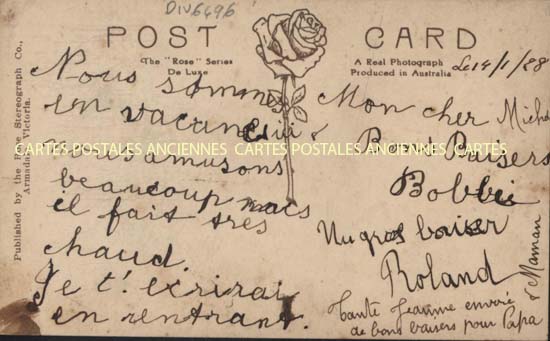 DIV6496
POST CARD
The "Rose" Series
De Luxe
A Real Photograph
Produced in Australia
Published by the Rose Stereograph Co.,
Armadale, Victoria.
Le 14/1/28
Nous sommes
en vacances ici &
nous amusons
beaucoup mais
il fait très
chaud.
Je t'écrirai
en rentrant.
Mon cher Michel
Bons Baisers
Bobbie
Un gros baiser
Roland
Tante Jeanne envoie
de bons baisers pour Papa
& Maman
CARTES POSTALES ANCIENNES CARTES POSTALES ANCIENNES CARTES